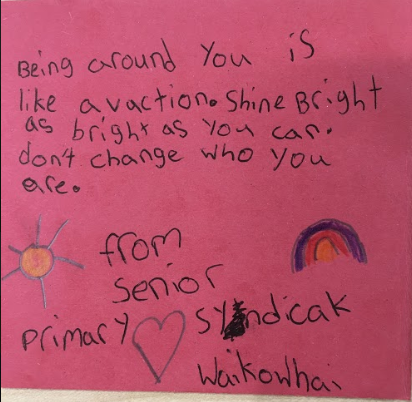 Being around You is
like a vaction. Shine Bright
as bright as You can.
don't change who you
are.
from
Senior
primary Syndicak
Waikowhai